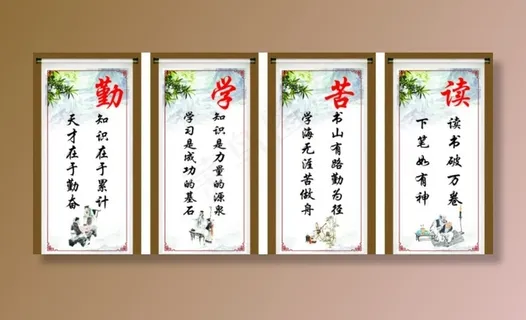 勤
知识在于累计
天才在于勤奋
学
知识是力量的源泉
学习是成功的基石
苦
书山有路勤为径
学海无涯苦做舟
读
读书破万卷
下笔如有神